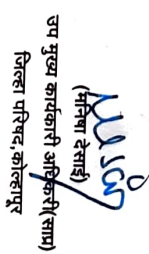 (मनिषा देसाई)
उप मुख्य कार्यकारी अधिकारी(साप्र)
जिल्हा परिषद,कोल्हापूर